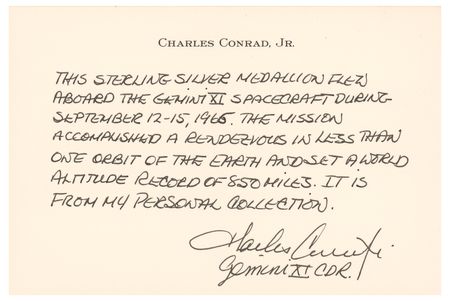 CHARLES CONRAD, JR.
THIS STERLING SILVER MEDALLION FLEW
ABOARD THE GEMINI XI SPACECRAFT DURING
SEPTEMBER 12-15, 1966. THE MISSION
ACCOMPLISHED A RENDEZVOUS IN LESS THAN
ONE ORBIT OF THE EARTH AND SET A WORLD
ALTITUDE RECORD OF 850 MILES. IT IS
FROM MY PERSONAL COLLECTION.
Charles Conrad Jr.
Gemini XI CDR.